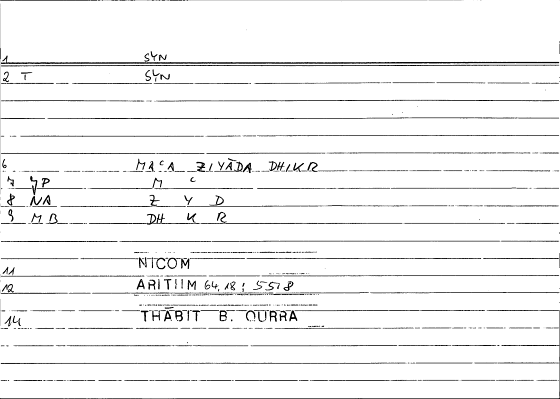 1 SYN
2 T SYN
6 MAᶜA ZIYĀDA DHIKR
7 YP M ᶜ
8 NA Z Y D
9 MB DH K R
11 NICOM
12 ARITHM 64,18 : 55,8
14 THĀBIT B. QURRA